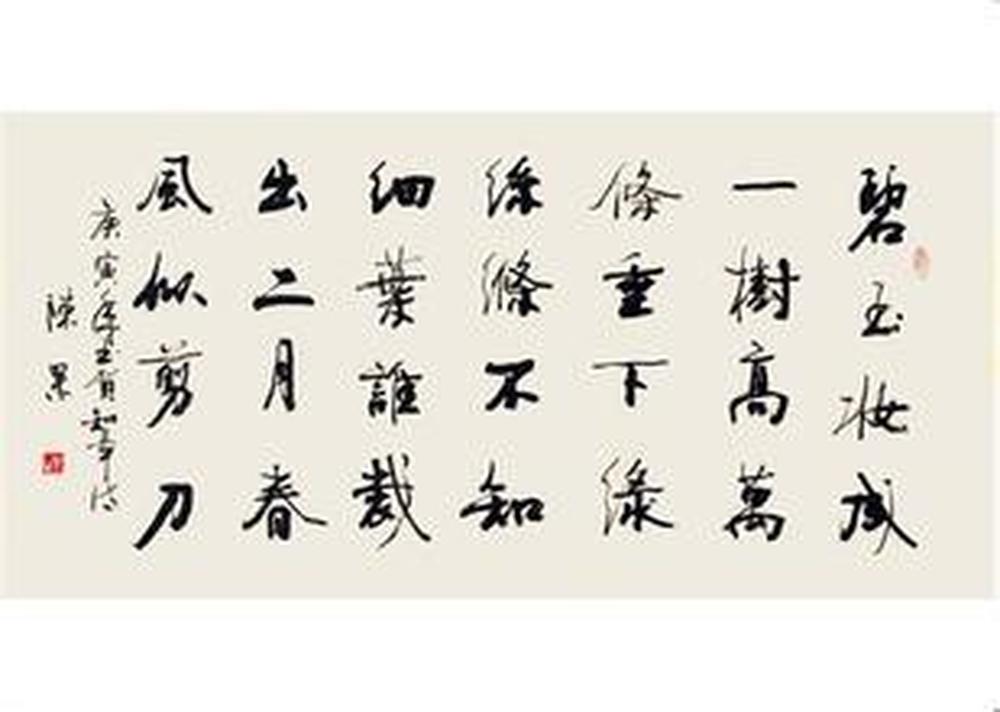 碧玉妆成
一樹高萬
條垂下綠
絲絛不知
細葉誰裁
出二月春
風似剪刀
庚寅年書賀知章詩
陳